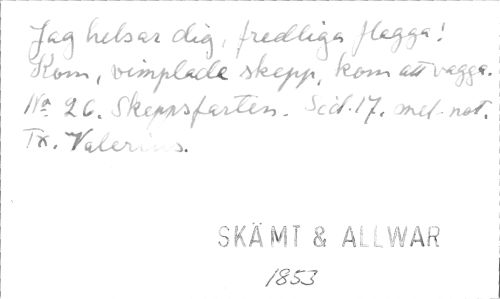 Jag helsar dig, fredliga flagga!
Kom, vimplade skepp, kom att vagga.
No 26. Skeppsfarten. Sid. 17. med not.
Tx. Valerius.
SKÄMT & ALLWAR
1853